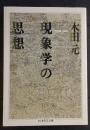 木田 元
現象学の
思想
ちくま学芸文庫